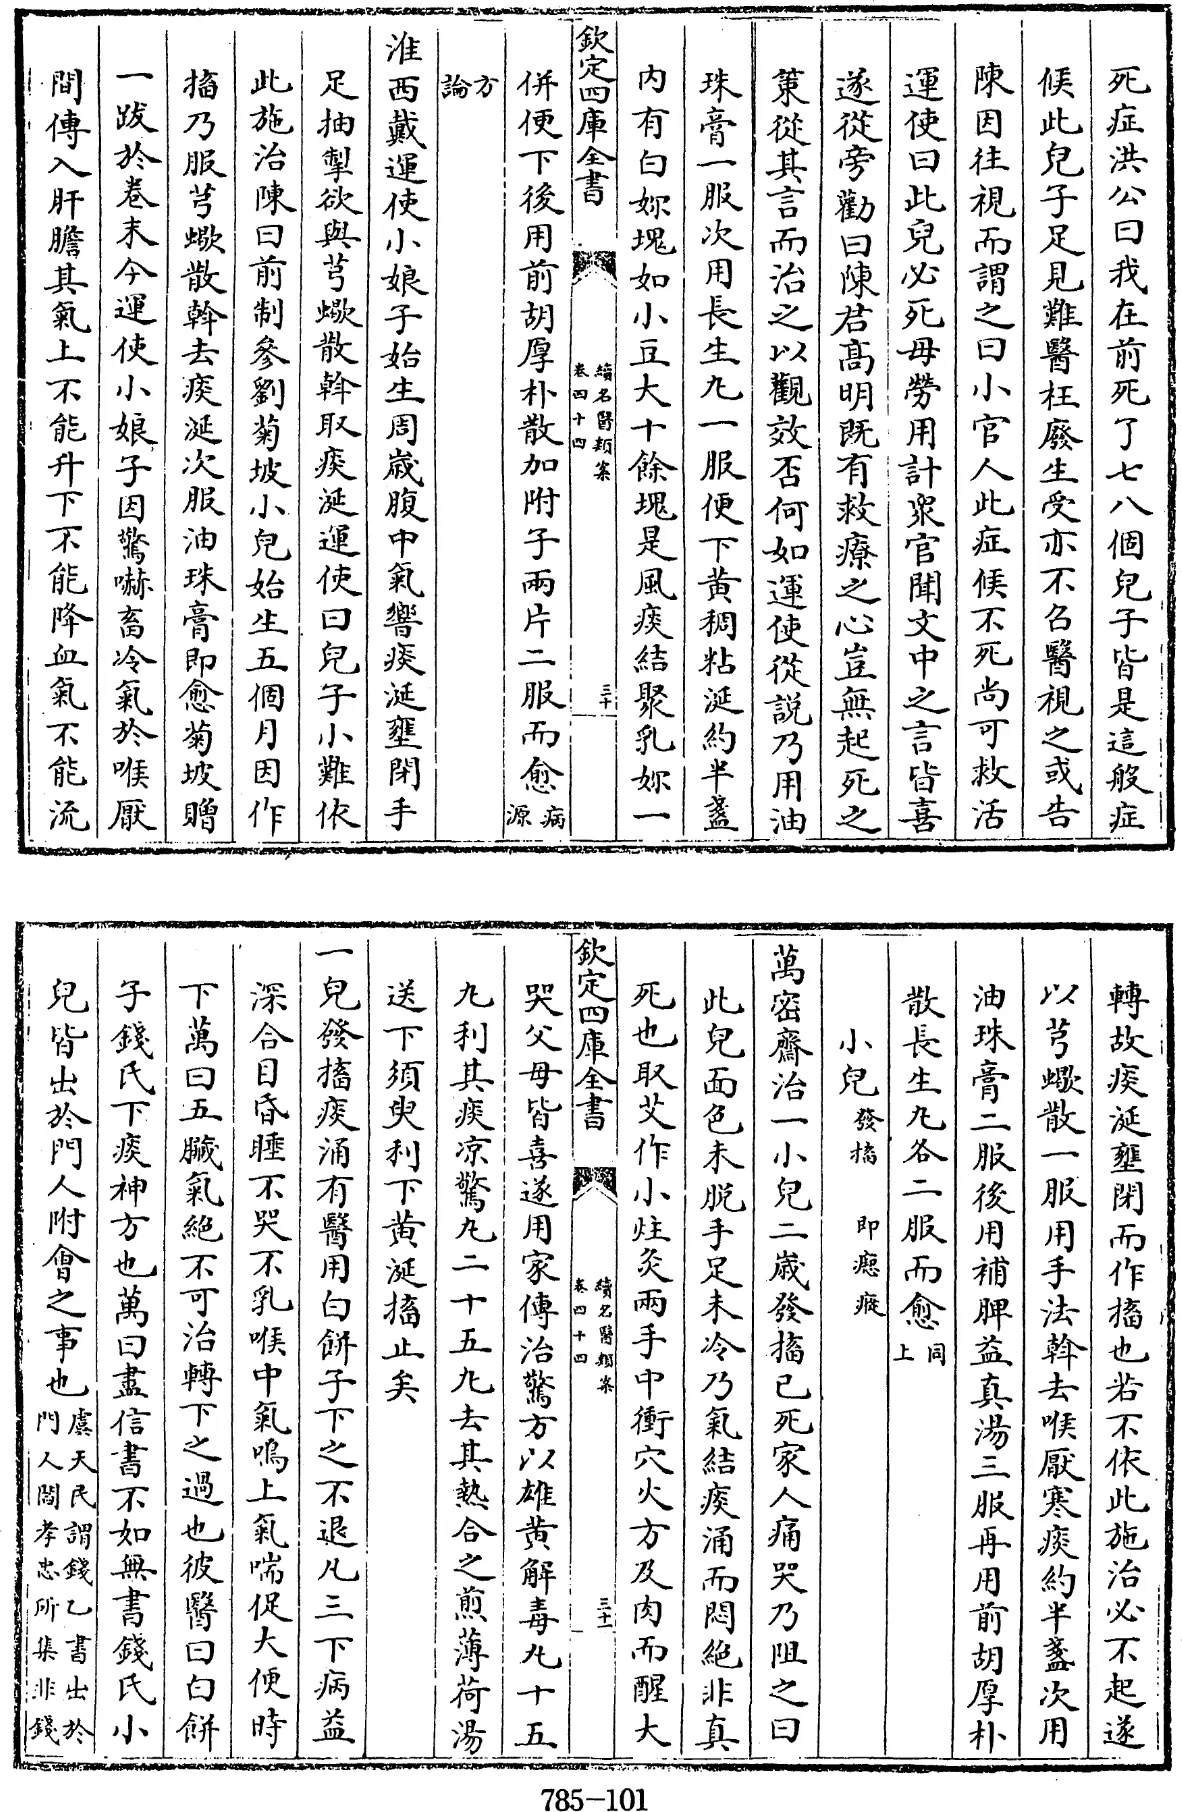 死症洪公曰我在前死了七八個兒子皆是這般症
候此兒子足見難醫枉廢生受亦不召醫視之或告
陳因往視而謂之曰小官人此症候不死尚可救活
運使曰此兒必死毋勞用計衆官聞文中之言皆喜
遂從旁勸曰陳君髙明既有救療之心豈無起死之
䇿從其言而治之以觀效否何如運使從説乃用油
珠膏一服次用長生丸一服便下黄稠粘涎約半盞
内有白妳塊如小豆大十餘塊是風痰結聚乳妳一
欽定四庫全書
續名醫類案
卷四十四
三十
併便下後用前胡厚朴散加附子兩片二服而愈病源
方論
淮西戴運使小娘子始生周歳腹中氣響痰涎壅閉手
足抽掣欲與芎蠍散斡取痰涎運使曰兒子小難依
此施治陳曰前制參劉菊坡小兒始生五個月因作
搐乃服芎蠍散斡去痰涎次服油珠膏即愈菊坡贈
一跋於卷末今運使小娘子因驚嚇畜冷氣於喉厭
間傳入肝膽其氣上不能升下不能降血氣不能流
轉故痰涎壅閉而作搐也若不依此施治必不起遂
以芎蠍散一服用手法斡去喉厭寒痰約半盞次用
油珠膏二服後用補脾益真湯三服再用前胡厚朴
散長生丸各二服而愈同上
小兒發搐 即瘛瘲
萬密齋治一小兒二歳發搐已死家人痛哭乃阻之曰
此兒面色未脱手足未冷乃氣結痰涌而悶絶非真
死也取艾作小炷灸兩手中衝穴火方及肉而醒大
欽定四庫全書
續名醫類案
卷四十四
三十一
哭父母皆喜遂用家傳治驚方以雄黄解毒丸十五
丸利其痰凉驚丸二十五丸去其熱合之煎薄荷湯
送下須臾利下黄涎搐止矣
一兒發搐痰涌有醫用白餅子下之不退凡三下病益
深合目昏睡不哭不乳喉中氣鳴上氣喘促大便時
下萬曰五臟氣絶不可治轉下之過也彼醫曰白餅
子錢氏下痰神方也萬曰盡信書不如無書錢氏小
兒皆出於門人附會之事也虞天民謂錢乙書出於
門人閻孝忠所集非錢
785-101